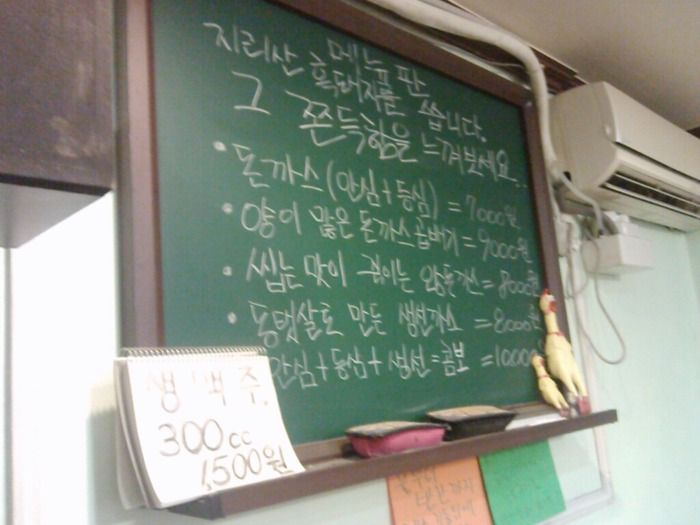 메뉴판
지리산 흑돼지를 씁니다.
그 쫀득함을 느껴보세요..
• 돈까스(안심+등심) = 7000원
• 양이 많은 돈까스곱배기 = 9000원
• 씹는 맛이 죽이는 왕돈까스 = 8000원
• 동태살로 만든 생선까스 = 8000원
안심+등심+생선=콤보 = 10000
생맥주.
300cc
1,500원